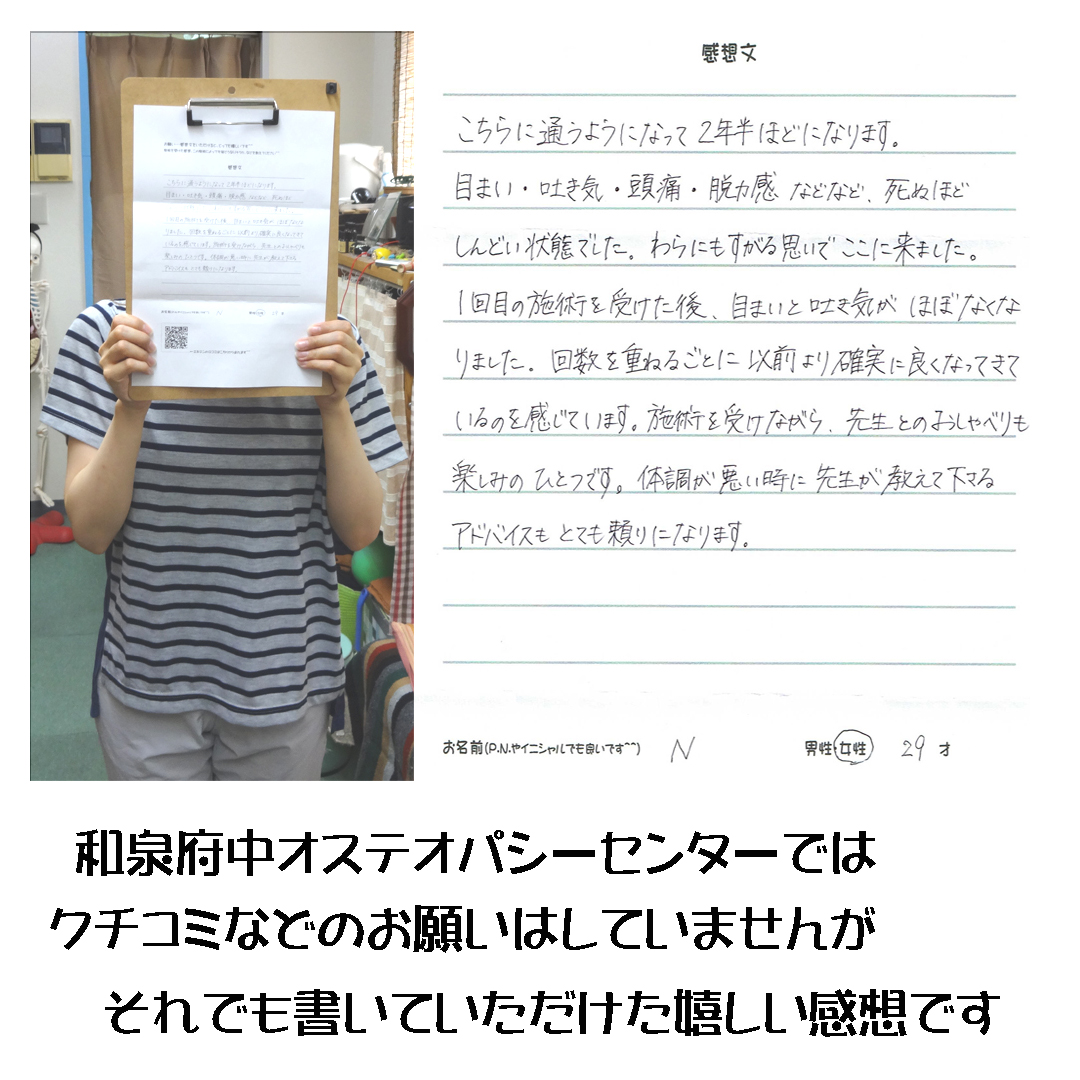 感想文
こちらに通うようになって2年半ほどになります。
目まい・吐き気・頭痛・脱力感 などなど、死ぬほど
しんどい状態でした。わらにもすがる思いでここに来ました。
1回目の施術を受けた後、目まいと吐き気が ほぼなくな
りました。回数を重ねるごとに以前より確実に良くなってきて
いるのを感じています。施術を受けながら、先生とのおしゃべりも
楽しみのひとつです。体調が悪い時に先生が教えて下さる
アドバイスもとても頼りになります。
お名前(P.N.やイニシャルでも良いです^^) N 男性・女性 29 才
和泉府中オステオパシーセンターでは
クチコミなどのお願いはしていませんが
それでも書いていただけた嬉しい感想です